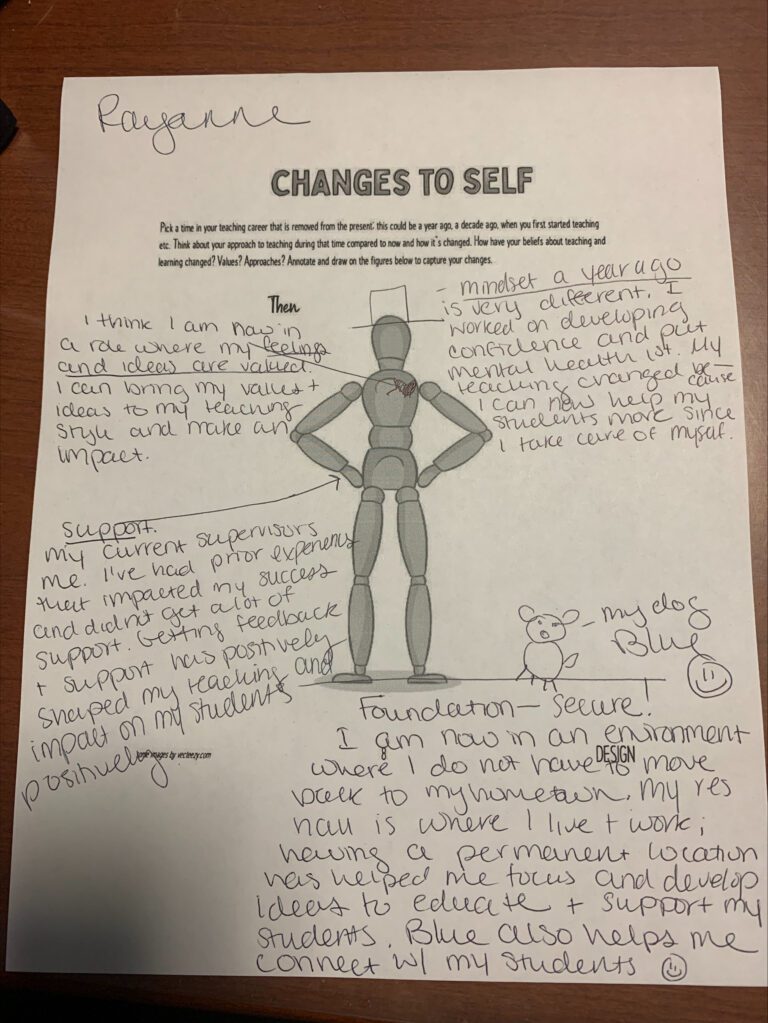 Rayanne
CHANGES TO SELF
Pick a time in your teaching career that is removed from the present: this could be a year ago, a decade ago, when you first started teaching
etc. Think about your approach to teaching during that time compared to now and how it's changed. How have your beliefs about teaching and
learning changed? Values? Approaches? Annotate and draw on the figures below to capture your changes.
Then
I think I am now in
a role where my feelings
and ideas are valued.
I can bring my values +
ideas to my teaching
style and make an
impact.
- mindset a year ago
is very different. I
worked on developing
confidence and put
mental health 1st. My
teaching changed be-
cause
I can now help my
students more since
I take care of myself.
support.
my current supervisors
me. I've had prior experiences
that impacted my success
and didn't get a lot of
support. Getting feedback
+ support has positively
shaped my teaching and
impact on my students
positively
- my dog
Blue
Foundation - Secure!
I am now in an environment
where I do not have to move
back to my hometown. My res
hall is where I live + work;
having a permanent location
has helped me focus and develop
ideas to educate + support my
students. Blue also helps me
connect w/ my students
images by vecteezy.com
DESIGN